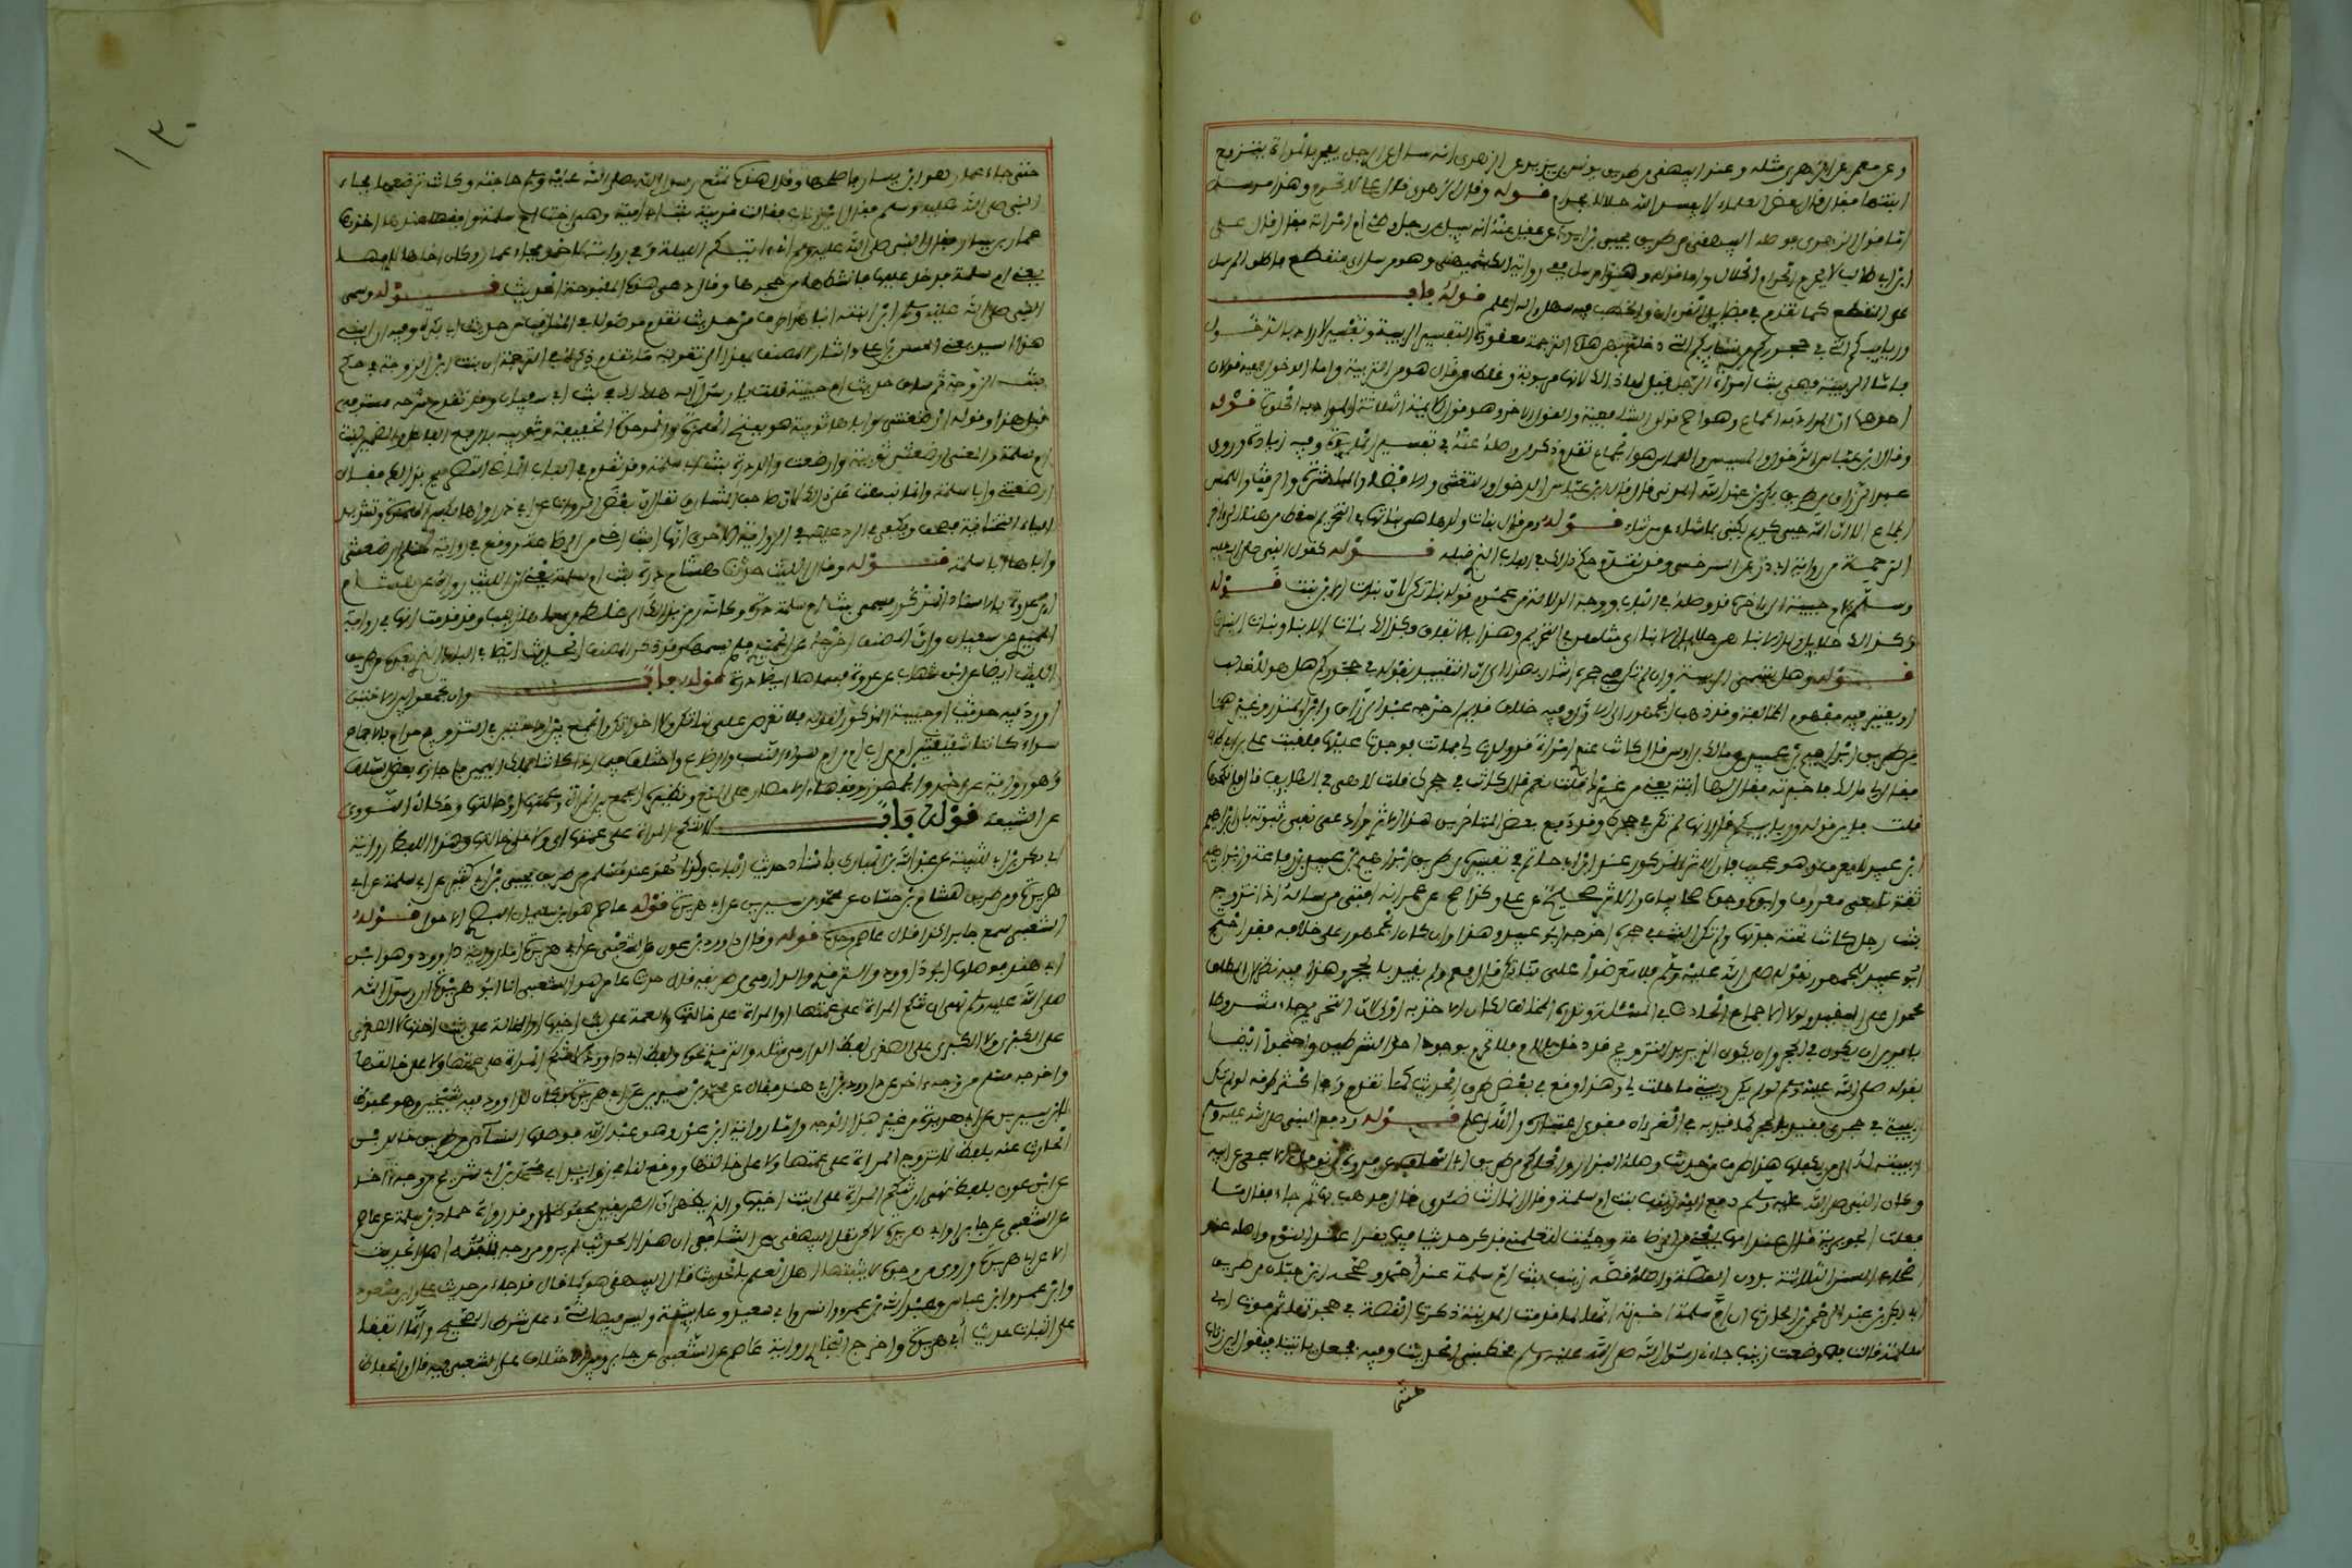 وعن معمر عن الزهري مثله وعند البيهقي من طريق يونس بن يزيد عن الزهري انه سئل عن الرجل يفجر بالمراة يتزوج
ابنتها فقال قال بعض العلماء لا يفسد الله حلالا بحرام قوله وقال الزهري قال علي لا تحرم وهذا مرسل
اما قول الزهري فوصله البيهقي من طريق يحيى بن ايوب عن عقيل عنه انه سيل عن رجل وطئ ام امراته فقال قال علي
ابن ابي طالب لا يحرم الحرام الحلال واما قوله وهذا مرسل ففي رواية الكشميهني وهو مرسل اي منقطع فاطلق المرسل
على المنقطع كما تقدم في فضايل القران والخطب فيه سهل والله اعلم قوله باب
وربايبكم التي في حجوركم من نسايكم التي دخلتم بهن هذه الترجمة معقودة لتفسير الربيبة وتفسير المراد بالدخول
فاما الربيبة فهي بنت امراة الرجل قيل لها ذلك لانها مربوبة وغلط من قال هو من التربية واما الدخول ففيه قولان
احدهما ان المراد به الجماع وهو اصح قولي الشافعي والقول الاخر وهو قول الايمة الثلاثة المراد به الخلوة قوله
وقال ابن عباس الدخول والمسيس واللماس هو الجماع تقدم ذكر من وصله عنه في تفسير المايدة وفيه زيادة وروى
عبد الرزاق من طريق بكر بن عبد الله المزني قال قال ابن عباس الدخول والتغشي والافضاء والمباشرة والرفث واللمس
الجماع الا ان الله حيي كريم يكني بما شاء عن ما شاء قوله ومن قال بنات ولدها هن بناته في التحريم سقط من هنا الى اخر
الترجمة من رواية ابي ذر عن السرخسي وقد تقدم حكم ذلك في الباب الذي قبله قوله لقول النبي صلى الله عليه
وسلم لام حبيبة الى اخره قد وصله في الباب ووجه الدلالة من عموم قوله بناتكن لان بنت الابن بنت قوله
وكذلك حلايل ولد الابناء هن حلايل الابناء اي مثلهن في التحريم وهذا بالاتفاق وكذلك بنات الابناء وبنات البنات
قوله وهل تسمى الربيبة وان لم تكن في حجره اشار بهذا الى ان التقييد بقوله في حجوركم هل هو للغالب
او يعتبر فيه مفهوم المخالفة وقد ذهب الجمهور الى الاول وفيه خلاف قديم اخرجه عبد الرزاق وابن المنذر وغيرهما
من طريق ابراهيم بن عبيد عن مالك بن اوس قال كانت عندي امراة قد ولدت لي فماتت فوجدت عليها فلقيت علي بن ابي طالب
فقال لي مالك فاخبرته فقال الها ابنة يعني من غيرك قلت نعم قال كانت في حجرك قلت لا هي في الطايف قال فانكحها
قلت فاين قوله وربايبكم قال انها لم تكن في حجرك وقد دفع بعض المتاخرين هذا الاثر وادعى نفي ثبوته بان ابراهيم
ابن عبيد لا يعرف وهو عجيب فان الاثر المذكور عند ابن ابي حاتم في تفسيره من طريق ابراهيم بن عبيد بن رفاعة وابراهيم
ثقة تابعي معروف وابوه وجده صحابيان والاثر صحيح عن علي وكذا صح عن عمر انه افتى من ساله اذ تزوج
بنت رجل كانت تحته جدتها ولم تكن البنت في حجره اخرجه ابو عبيد وهذا وان كان الجمهور على خلافه فقد احتج
ابو عبيد للجمهور بقوله صلى الله عليه وسلم فلا تعرضن علي بناتكن قال فعم ولم يقيد بالحجر وهذا فيه نظر لان المطلق
محمول على المقيد ولولا الاجماع الحادث في المسئلة وندرة المخالف لكان الاخذ به اولى لان التحريم جاء مشروطا
بامرين ان تكون في الحجر وان يكون الذي يريد التزويج قد دخل بالام فلا تحرم بوجود احد الشرطين واحتجوا ايضا
بقوله صلى الله عليه وسلم لو لم تكن ربيبتي ما حلت لي وهذا وقع في بعض طرق الحديث كما تقدم واما اكثر طرقه لو لم تكن
ربيبتي في حجري فقيد بالحجر كما قيد به في القران فقوي اعتباره والله اعلم قوله ودفع النبي صلى الله عليه وسلم
ربيبته له الى من يكفلها هذا طرف من حديث وصله البزار والحاكم من طريق ابي اسحاق عن فروة بن نوفل الاشجعي عن ابيه
وكان النبي صلى الله عليه وسلم دفع اليه زينب بنت ام سلمة وقال انما انت ظئري قال فذهب بها ثم جاء فقال ما
فعلت الجويرية قال عند امها يعني من الرضاعة وجئت لتعلمني فذكر حديثا فيما يقرا عند النوم واصله عند
اصحاب السنن الثلاثة بدون القصة واصل قصة زينب بنت ام سلمة عند احمد وصححه ابن حبان من طريق
ابي بكر بن عبد الرحمن بن الحارث ان ام سلمة اخبرته انها لما قدمت المدينة فذكرت القصة في هجرتها ثم موت ابي
سلمة قالت فلما وضعت زينب جاءني رسول الله صلى الله عليه وسلم فخطبني الحديث وفيه فجعل ياتينا فيقول اين زناب
حتى
١٣٠
حتى جاء عمار وهو ابن ياسر فاختلجها وقال هذه تمنع رسول الله صلى الله عليه وسلم حاجته وكانت ترضعها فجاء
النبي صلى الله عليه وسلم فقال اين زناب فقالت قريبة بنت ابي امية وهي اخت ام سلمة وافقها عندها اخذها
عمار بن ياسر فقال النبي صلى الله عليه وسلم اني اتيكم الليلة وفي رواية لاحمد فجاء عمار وكان اخاها لامها
يعني ام سلمة فدخل عليها فانتشطها من حجرها وقال دعي هذه المقبوحة الحديث قوله وسمى
النبي صلى الله عليه وسلم ابن ابنته ابنا هذا طرف من حديث تقدم موصولا في المناقب من حديث ابي بكرة وفيه ان ابني
هذا سيد يعني الحسن بن علي واشار المصنف بهذا الى تقوية ما تقدم ذكره في الترجمة ان بنت ابن الزوجة في حكم
بنت الزوجة ثم ساق حديث ام حبيبة قلت يا رسول الله هل لك في بنت ابي سفيان وقد تقدم شرحه مستوفى
قبل هذا وقوله ارضعتني واباها ثويبة هو بفتح الهمزة والموحدة الخفيفة وثويبة بالرفع الفاعل والضمير لبنت
ام سلمة والمعنى ارضعتني ثويبة وارضعت والد درة بنت ابي سلمة وقد تقدم في الباب الماضي التصريح بذلك فقال
ارضعتني وابا سلمة وانما نبهت على ذلك لان صاحب المشارق نقل ان بعض الرواة عن ابي ذر رواها بكسر الهمزة وتشديد
الياء التحتانية فصحف ويكفي في الرد عليه في الرواية الاخرى انها ابنة اخي من الرضاعة ووقع في رواية لمسلم ارضعتني
واباها ابا سلمة قوله وقال الليث حدثنا هشام درة بنت ام سلمة يعني ان الليث رواه عن هشام
ابن عروة بالاسناد المذكور فسمى بنت ام سلمة درة وكانه رمز بذلك الى غلط من سماها زينب وقد قدمت انها في رواية
الحميدي عن سفيان وان المصنف اخرجه عن الحميدي فلم يسمها وقد ذكر المصنف الحديث ايضا في الباب الذي بعده من طريق
الليث ايضا عن ابن شهاب عن عروة فسماها ايضا درة قوله باب وان تجمعوا بين الاختين
اورد فيه حديث ام حبيبة المذكور لقوله فلا تعرضن علي بناتكن ولا اخواتكن والجمع بين الاختين في التزويج حرام بالاجماع
سواء كانتا شقيقتين ام من اب ام من ام وسواء النسب والرضاع واختلف فيما اذا كانتا بملك اليمين فاجازه بعض السلف
وهو رواية عن احمد والجمهور وفقهاء الامصار على المنع ونظيره الجمع بين المراة وعمتها او خالتها وحكاه الثوري
عن الشيعة قوله باب لا تنكح المراة على عمتها اي ولا على خالتها وهذا اللفظ رواية
ابي بكر بن ابي شيبة عن عبد الله بن المبارك باسناد حديث الباب وكذا هو عند مسلم من طريق يحيى بن ابي كثير عن ابي سلمة عن ابي
هريرة ومن طريق هشام بن حسان عن محمد بن سيرين عن ابي هريرة قوله عاصم هو ابن سليمان البصري الاحول قوله
الشعبي سمع جابرا كذا قال عاصم وحده قوله وقال داود وابن عون عن الشعبي عن ابي هريرة اما رواية داوود وهو ابن
ابي هند فوصلها ابو داوود والترمذي والدارمي من طريقه قال حدثنا عامر هو الشعبي انا ابو هريرة ان رسول الله
صلى الله عليه وسلم نهى ان تنكح المراة على عمتها او المراة على خالتها والعمة على بنت اخيها او الخالة على بنت اختها لا الصغرى
على الكبرى ولا الكبرى على الصغرى لفظ الدارمي مثله والترمذي نحوه ولفظ ابي داوود لا تنكح المراة على عمتها ولا على خالتها
واخرجه مسلم من وجه اخر عن داوود بن ابي هند فقال عن محمد بن سيرين عن ابي هريرة فكان لداوود فيه شيخين وهو محفوظ
لابن سيرين عن ابي هريرة من غير هذا الوجه واما رواية ابن عون وهو عبد الله فوصلها النساي من طريق خالد بن
الحارث عنه بلفظ لا تزوج المراة على عمتها ولا على خالتها ووقع لنا في فوايد ابي محمد بن ابي شريح من وجه اخر
عن ابن عون بلفظ نهى ان تنكح المراة على ابنة اخيها والذي يظهر ان الطريقين محفوظان وقد رواه حماد بن سلمة عن عاصم
عن الشعبي عن جابر او ابي هريرة لاكن نقل البيهقي عن الشافعي ان هذا الحديث لم يرو من وجه يثبته اهل الحديث
الا عن ابي هريرة وروي من وجوه لا يثبتها اهل العلم بالحديث قال البيهقي هو كما قال قد جاء من حديث علي وابن مسعود
وابن عمر وابن عباس وعبد الله بن عمرو وانس وابي سعيد وعايشة وليس فيها شيء على شرط الصحيح وانما اتفقا
على اثبات حديث ابي هريرة واخرج البخاري رواية عاصم عن الشعبي عن جابر وبين الاختلاف على الشعبي فيه قال والحفاظ